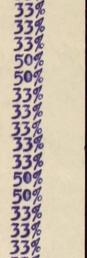 33%
33%
33%
50%
50%
33%
33%
33%
33%
33%
50%
33%
50%
50%
33%
33%
33%
50%